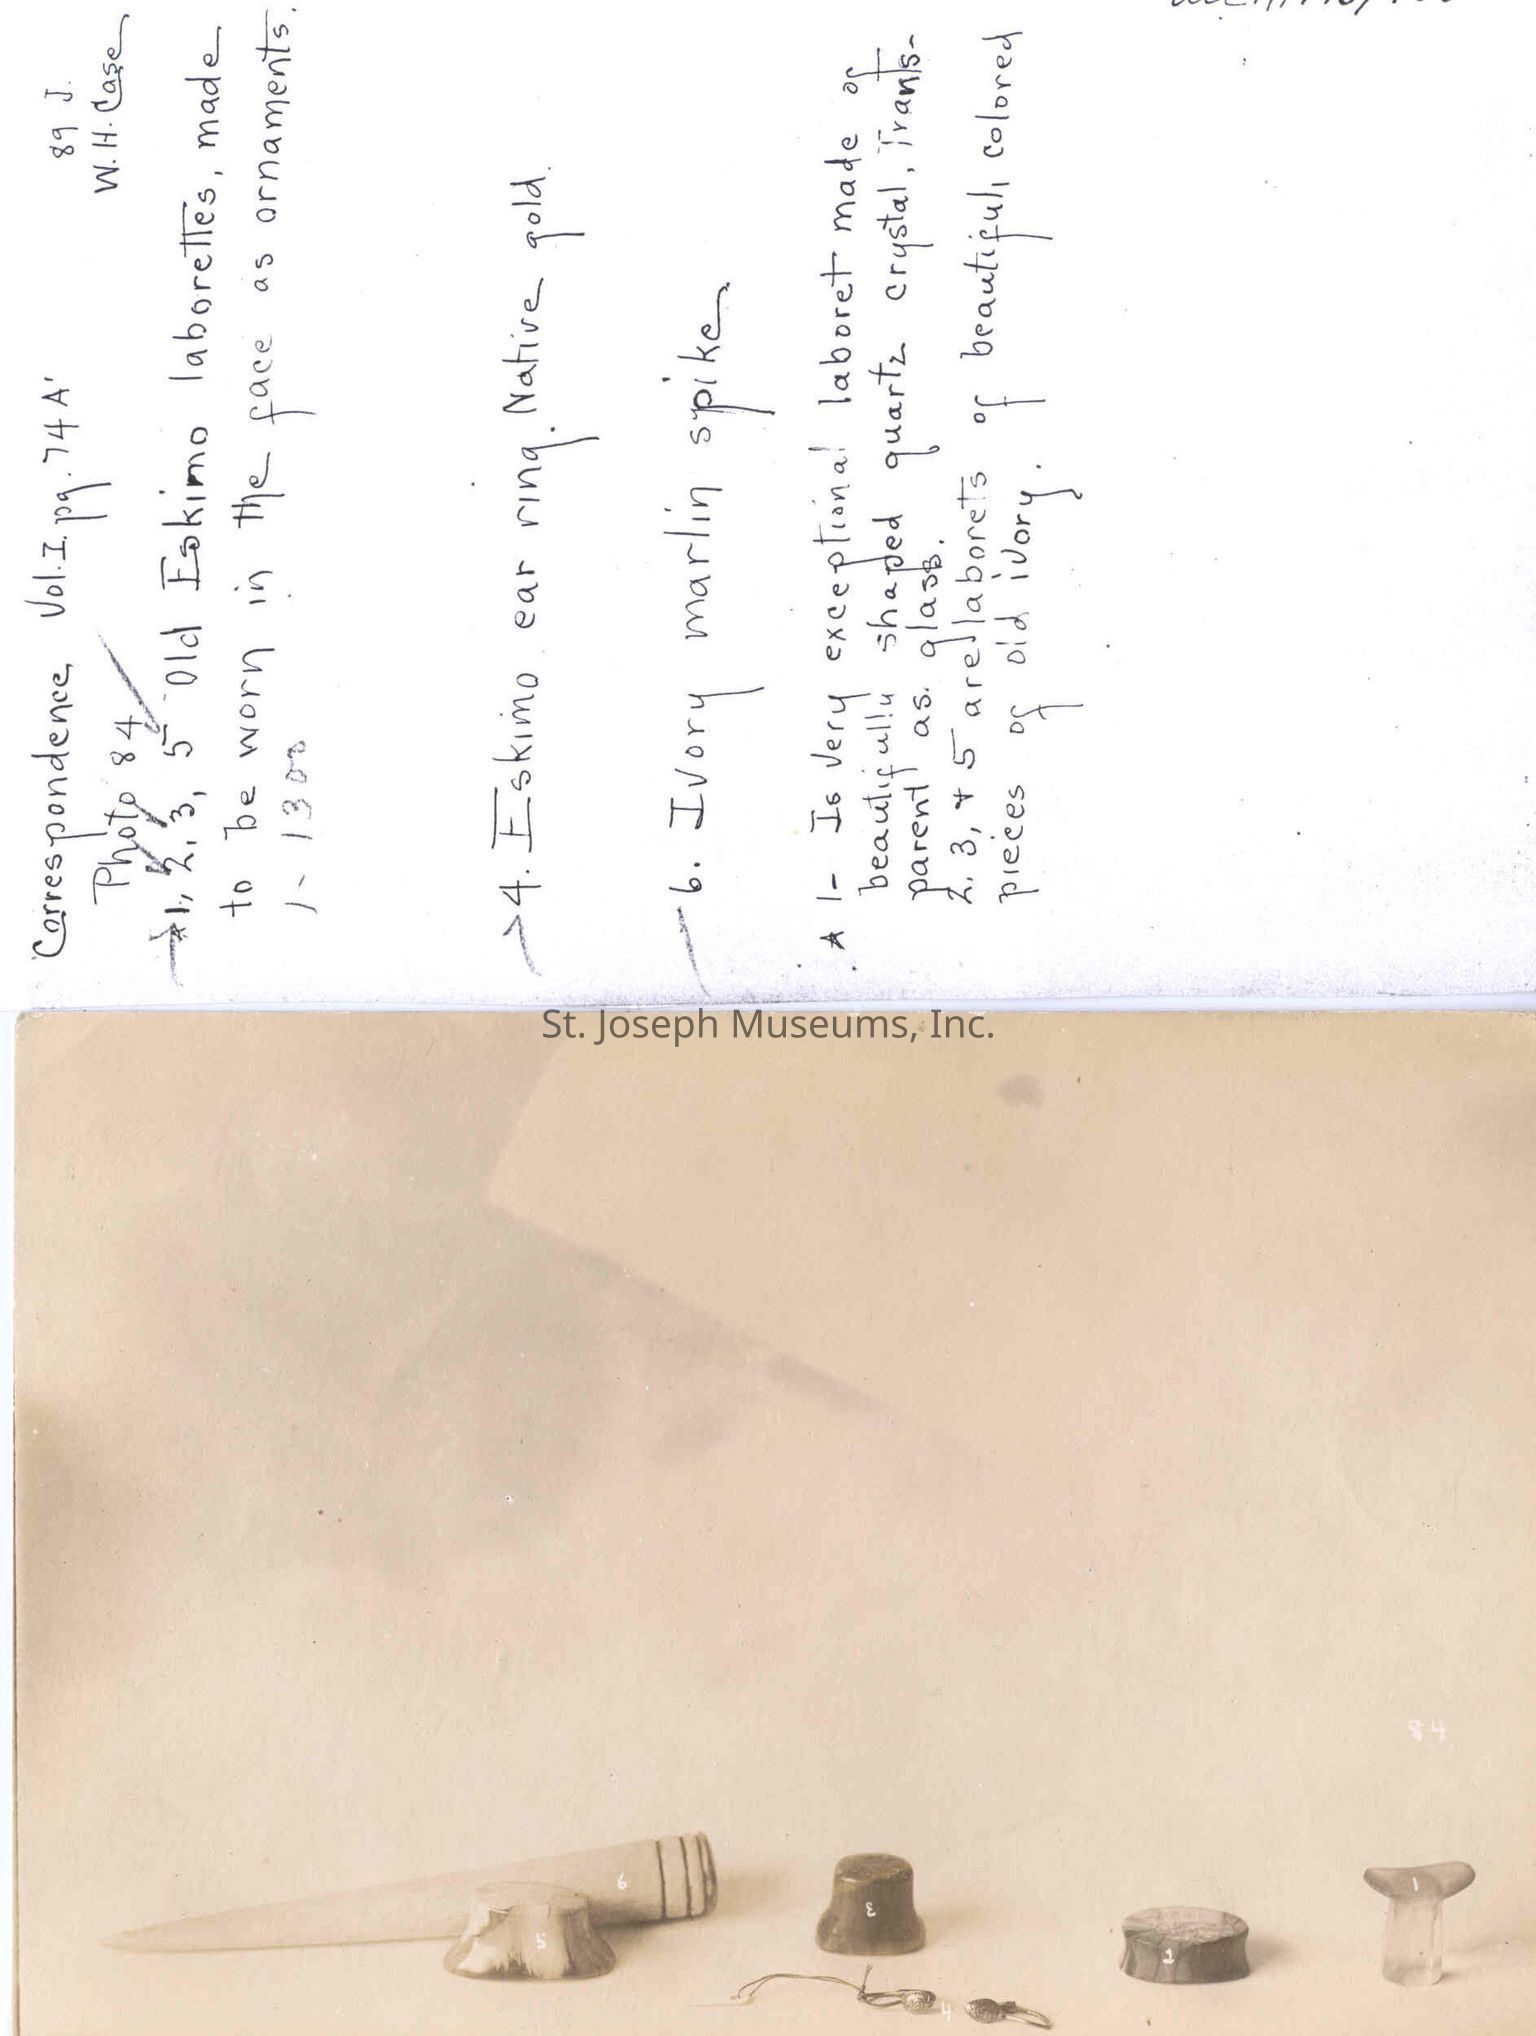 89 J.
Correspondence Vol. I. pg. 74 A' W.H. Case
Photo 84
*1, 2, 3, 5 Old Eskimo laborettes, made
to be worn in the face as ornaments.
1- 1300
4. Eskimo ear ring. Native gold.
6. Ivory marlin spike
* 1- Is very exceptional laboret made of
beautifully shaped quartz crystal, trans-
parent as glass.
2, 3, + 5 are laborets of beautiful, colored
pieces of old ivory.
St. Joseph Museums, Inc.
84
6
5
3
2
1
4